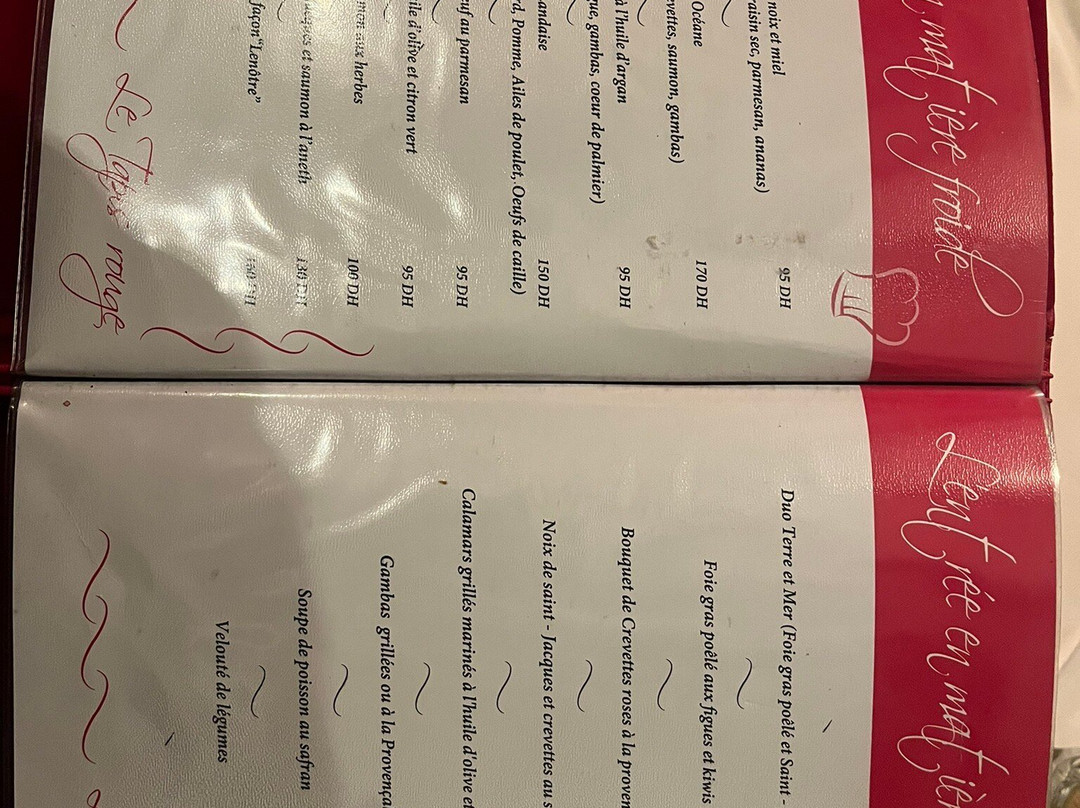 mat ière froide
noix et miel 95 DH
raisin sec, parmesan, ananas)
Océane 170 DH
evettes, saumon, gambas)
à l'huile d'argan 95 DH
que, gambas, coeur de palmier)
andaise 150 DH
rd, Pomme, Ailes de poulet, Oeufs de caille)
uf au parmesan 95 DH
ile d'olive et citron vert 95 DH
mon aux herbes 100 DH
acques et saumon à l'aneth 130 DH
façon "Lenôtre" DH
Le Tapis rouge
L'ent rée en mat iè
Duo Terre et Mer (Foie gras poêlé et Saint -
Foie gras poêlé aux figues et kiwis
Bouquet de Crevettes roses à la proven
Noix de saint - Jacques et crevettes au s
Calamars grillés marinés à l'huile d'olive et
Gambas grillées ou à la Provença
Soupe de poisson au safran
Velouté de légumes